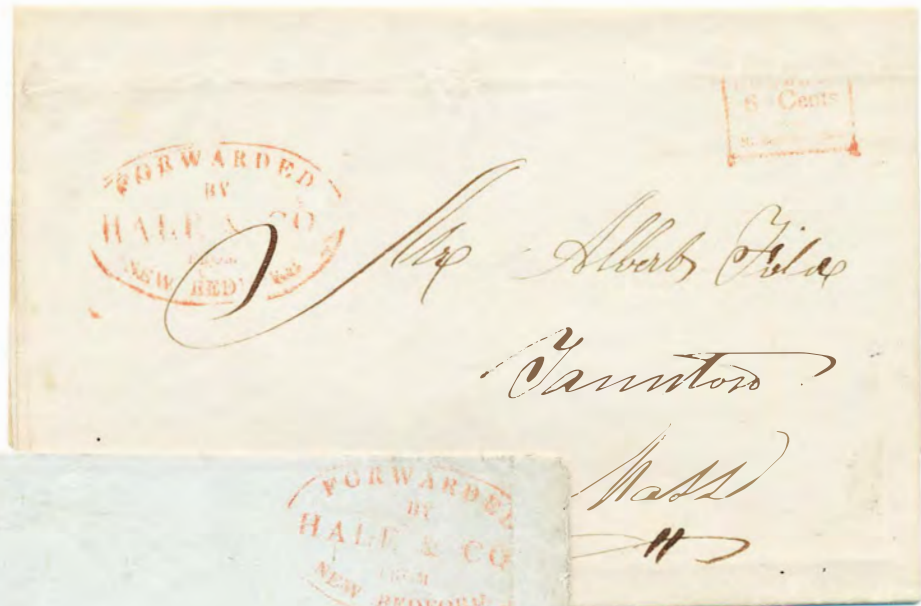 FORWARDED
BY
HALE & CO
FROM
NEW BEDF
6 Cents
Mr Albert Field
Taunton
Mass
FORWARDED
BY
HALE & CO
FROM
NEW BEDFORD